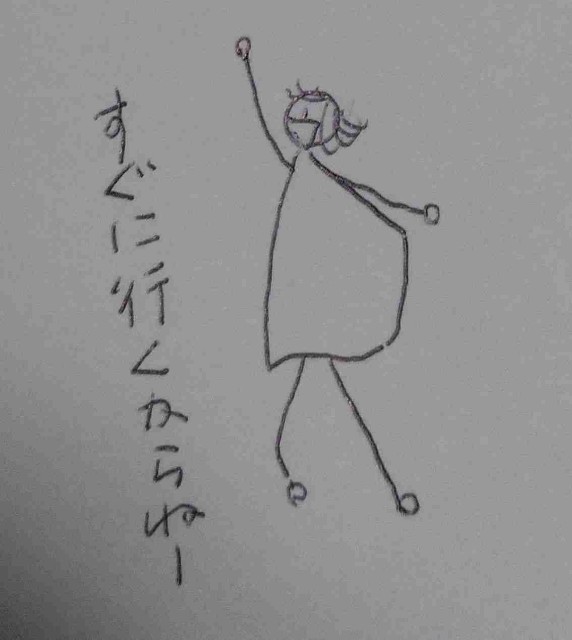 すぐに行くからねー